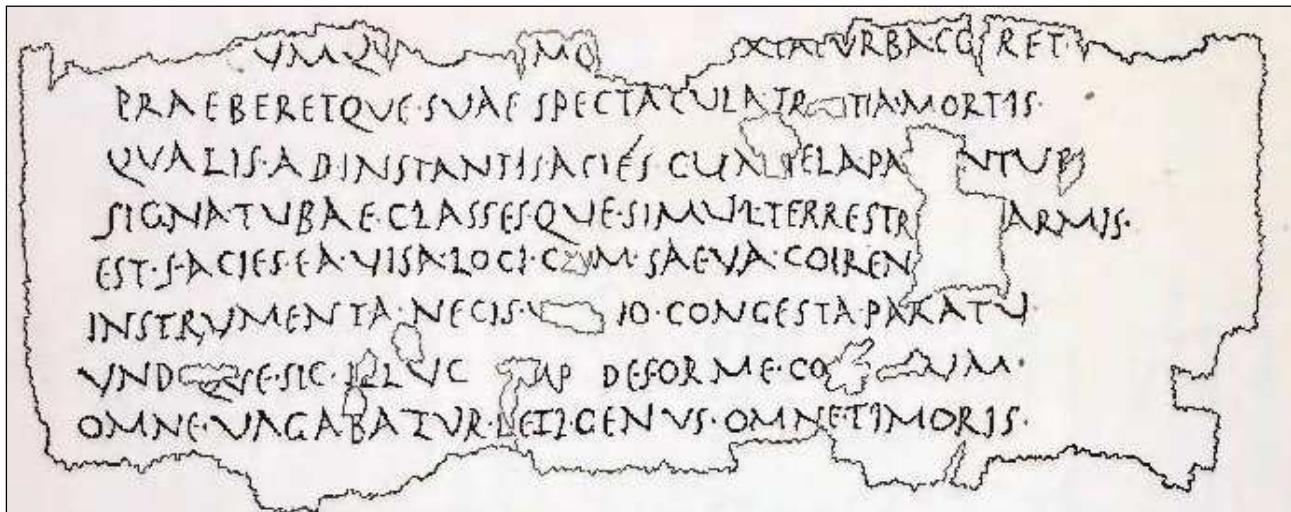 VMQV MQ XIATVRBACO RET
PRAEBERETQVE·SVAE SPECTACULA·TR TIA·MORTIS·
QVALIS·ADINSTANTISACIES CUM TELA·PA NTUR
SIGNATUBAE·CLASSESQUE·SIMUL·TERRESTR ARMIS·
EST·FACIES·EA·VISA·LOCI·CUM·SAEVA·COIREN
INSTRVMENTA·NECIS·V IO·CONGESTA·PARATU
VND QVE·SIC·ILLVC MP DEFORME·CO UM·
OMNE·VAGABATUR·LETI·GENUS·OMNE·TIMORIS·